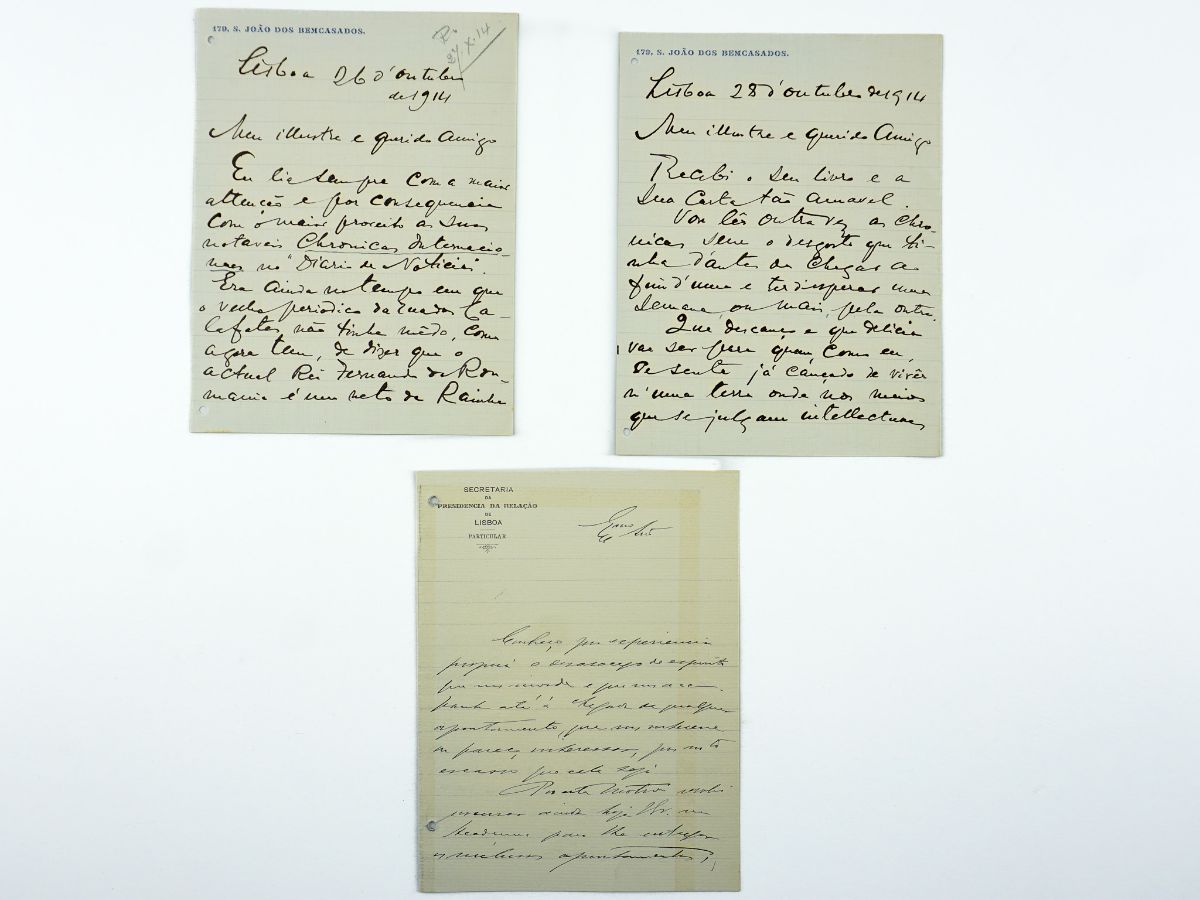 179, S. JOÃO DOS BEMCASADOS.
R. 27-X-14
Lisboa 26 d'Outubro
de 1914
Meu illustre e querido Amigo
Eu lia sempre com a maior
attenção e por consequencia
com o maior proveito as suas
notaveis Chronicas Internacio-
naes no "Diario de Noticias".
Era ainda no tempo em que
o velho periodico da rua dos Ca-
lafates não tinha mêdo, como
agora tem, de dizer que o
actual Rei Fernando da Rou-
mania é um neto da Rainha
179, S. JOÃO DOS BEMCASADOS.
Lisboa 28 d'Outubro de 1914
Meu illustre e querido Amigo
Recebi o seu livro e a
sua carta tão amavel.
Vou lêr outra vez as Chro-
nicas sem o desgosto que ti-
nha d'antes de chegar ao
fim d'uma e ter d'esperar uma
semana, ou mais, pela outra.
Que descanço e que delicia
vae ser para quem, como eu,
se sente já cançado de vivêr
n'uma terra onde nos meios
que se julgam intellectuaes
SECRETARIA
DA
PRESIDENCIA DA RELAÇÃO
DE
LISBOA
PARTICULAR
Exmo Snr
Conheço por experiencia
propria o desasocego de espirito
que nos
até á chegada de qualquer
apontamento, que nos
ou pareça interessar, por mais
escasso que elle seja
Por este motivo
procurar ainda hoje V. Ex.
Academia para lhe entregar
os apontamentos,